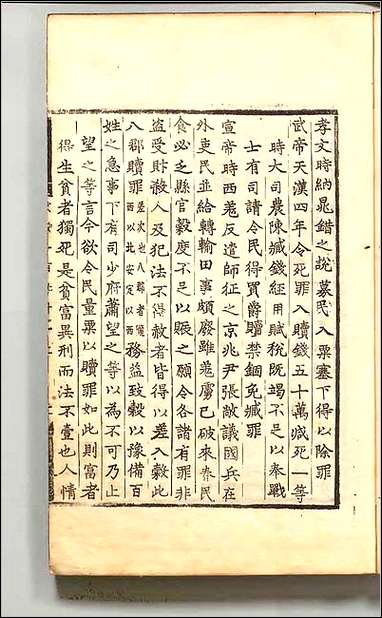 孝文時納晁錯之說募民入粟塞下得以除罪
武帝天漢四年令死罪入贖錢五十萬減死一等
時大司農陳臧錢經用賦稅既竭不足以奉戰
士有司請令民得買爵贖禁錮免臧罪
宣帝時西羌反遣師征之京兆尹張敞議國兵在
外吏民並給轉輸田事頗廢雖羌虜已破來春民
食必乏縣官穀度不足以賑之願令各諸有罪非
盜受財殺人及犯法不得赦者皆得以差入穀此
八郡贖罪差次也八郡者隴西以北安定以西務益致穀以豫備百
姓之急事下有司少府蕭望之等以為不可乃止
望之等言今欲令民量粟以贖罪如此則富者
得生貧者獨死是貧富異刑而法不壹也人情